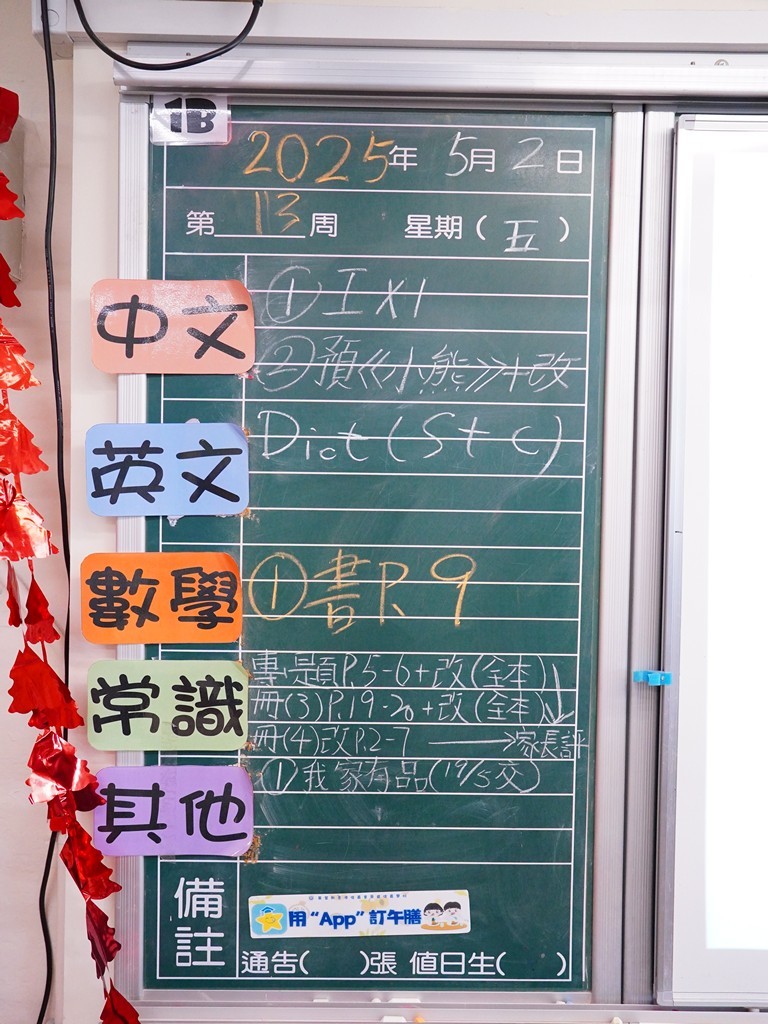 1B
2025年 5月 2日
第 13 周 星期(五)
中文 ① 工X1
② 預《小熊》+改
英文 Dict (S+C)
數學 ① 書P. 9
常識 專題P.5-6+改(全本)
冊(3)P.19-20+改(全本)↓
冊(4)改P.2-7 → 家長評
其他 ① 我家有品(19/5交)
備註
用 “App” 訂午膳
通告( )張 值日生( )